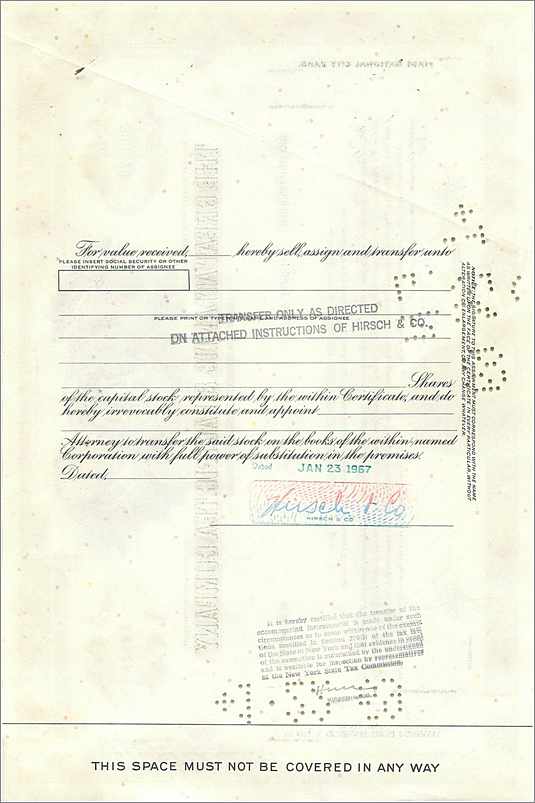 FIRST NATIONAL CITY BANK
For value received, hereby sell, assign and transfer unto
PLEASE INSERT SOCIAL SECURITY OR OTHER
IDENTIFYING NUMBER OF ASSIGNEE
TRANSFER ONLY AS DIRECTED
PLEASE PRINT OR TYPE NAME AND ADDRESS OF ASSIGNEE
ON ATTACHED INSTRUCTIONS OF HIRSCH & CO.
Shares
of the capital stock represented by the within Certificate, and do
hereby irrevocably constitute and appoint
Attorney to transfer the said stock on the books of the within named
Corporation with full power of substitution in the premises.
Dated JAN 23 1967
Dated,
Hirsch & Co
HIRSCH & CO
NOTICE: THE SIGNATURE TO THIS ASSIGNMENT MUST CORRESPOND WITH THE NAME
AS WRITTEN UPON THE FACE OF THE CERTIFICATE IN EVERY PARTICULAR, WITHOUT
ALTERATION OR ENLARGEMENT OR ANY CHANGE WHATEVER.
It is hereby certified that the transfer of the
accompanying instrument is made under such
circumstances as to come within one of the exemp-
tions specified in Section 270(5) of the tax law
of the State of New York and that evidence in proof
of the exemption is maintained by the undersigned
and is available for inspection by representatives
of the New York State Tax Commission.
THIS SPACE MUST NOT BE COVERED IN ANY WAY